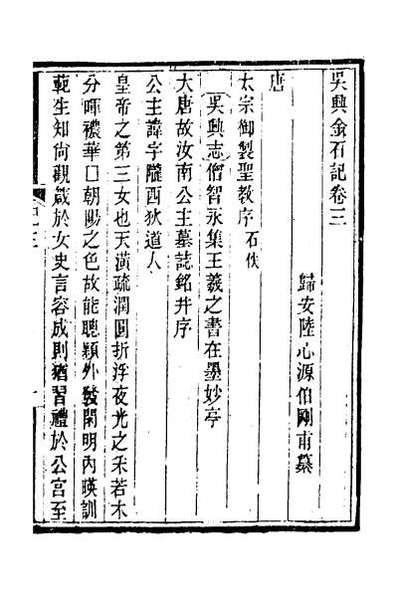 吳興金石記卷三
歸安陸心源伯剛甫纂
唐
太宗御製聖教序石佚
吳興志僧智永集王羲之書在墨妙亭
大唐故汝南公主墓誌銘并序
公主諱字隴西狄道人
皇帝之第三女也天潢疏潤圓折浮夜光之采若木
分暉穠華囗朝陽之色故能聰穎外發閑明內暎訓
範生知尚觀箴於女史言容成則猶習禮於公宮至